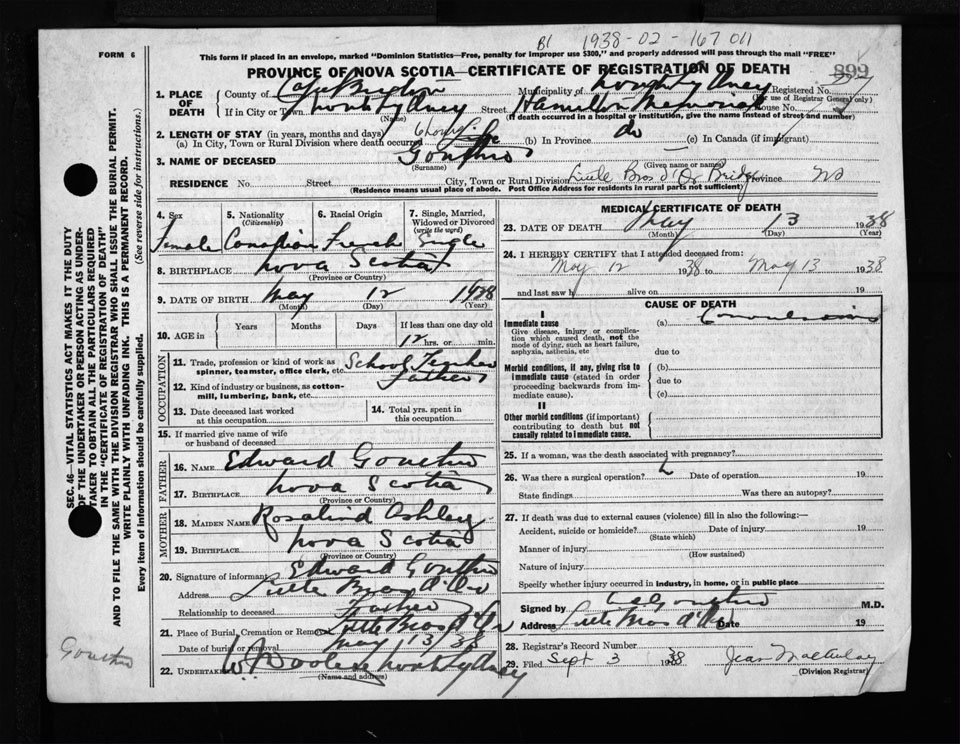 B1 1938-02-167011
FORM 6
This form if placed in an envelope, marked "Dominion Statistics—Free, penalty for improper use $300," and properly addressed will pass through the mail "FREE"
899
PROVINCE OF NOVA SCOTIA—CERTIFICATE OF REGISTRATION OF DEATH
1. PLACE OF DEATH
County of Cape Breton Municipality of North Sydney Registered No.
(For use of Registrar General only)
If in City or Town North Sydney Street Hamilton Memorial House No.
(Name) (If death occurred in a hospital or institution, give the name instead of street and number)
2. LENGTH OF STAY (in years, months and days)
(a) In City, Town or Rural Division where death occurred Life (b) In Province do (c) In Canada (if immigrant)
3. NAME OF DECEASED
(Surname) (Given name or names)
RESIDENCE No. Street City, Town or Rural Division Little Bras d'Or Bridge Province NS
(Residence means usual place of abode. Post Office Address for residents in rural parts not sufficient)
4. Sex 5. Nationality (Citizenship) 6. Racial Origin 7. Single, Married, Widowed or Divorced (write the word)
Female Canadian French Single
8. BIRTHPLACE Nova Scotia
(Province or Country)
9. DATE OF BIRTH May 12 1938
(Month) (Day) (Year)
10. AGE in Years Months Days If less than one day old
12 hrs. or min.
OCCUPATION
11. Trade, profession or kind of work as spinner, teamster, office clerk, etc. School Teacher
Father
12. Kind of industry or business, as cotton-mill, lumbering, bank, etc.
13. Date deceased last worked at this occupation
14. Total yrs. spent in this occupation
15. If married give name of wife or husband of deceased
FATHER
16. NAME Edward
17. BIRTHPLACE Nova Scotia
(Province or Country)
MOTHER
18. MAIDEN NAME Rosalind Ashley
19. BIRTHPLACE Nova Scotia
(Province or Country)
20. Signature of informant Edward
Address Little Bras d'Or
Relationship to deceased Father
21. Place of Burial, Cremation or Removal Little Bras d'Or
Date of burial or removal May 13/38
22. UNDERTAKER North Sydney
(Name and address)
MEDICAL CERTIFICATE OF DEATH
23. DATE OF DEATH May 13 1938
(Month) (Day) (Year)
24. I HEREBY CERTIFY that I attended deceased from:
May 12 1938 to May 13 1938
and last saw h alive on 19
CAUSE OF DEATH
I
Immediate cause (a) Convulsions
Give disease, injury or complication which caused death, not the mode of dying, such as heart failure, asphyxia, asthenia, etc
due to
Morbid conditions, if any, giving rise to immediate cause (stated in order proceeding backwards from immediate cause).
(b)
due to
(c)
II
Other morbid conditions (if important) contributing to death but not causally related to immediate cause.
25. If a woman, was the death associated with pregnancy?
26. Was there a surgical operation? Date of operation 19
State findings Was there an autopsy?
27. If death was due to external causes (violence) fill in also the following:—
Accident, suicide or homicide? Date of injury 19
(State which)
Manner of injury
(How sustained)
Nature of injury
Specify whether injury occurred in industry, in home, or in public place
Signed by M.D.
Address Little Bras d'Or Date 19
28. Registrar's Record Number
29. Filed Sept 3 1938
(Division Registrar)
SEC. 46—VITAL STATISTICS ACT MAKES IT THE DUTY
OF THE UNDERTAKER OR PERSON ACTING AS UNDER-
TAKER TO OBTAIN ALL THE PARTICULARS REQUIRED
IN THE "CERTIFICATE OF REGISTRATION OF DEATH"
AND TO FILE THE SAME WITH THE DIVISION REGISTRAR WHO SHALL ISSUE THE BURIAL PERMIT.
WRITE PLAINLY WITH UNFADING INK. THIS IS A PERMANENT RECORD.
Every item of information should be carefully supplied. (See reverse side for instructions.)